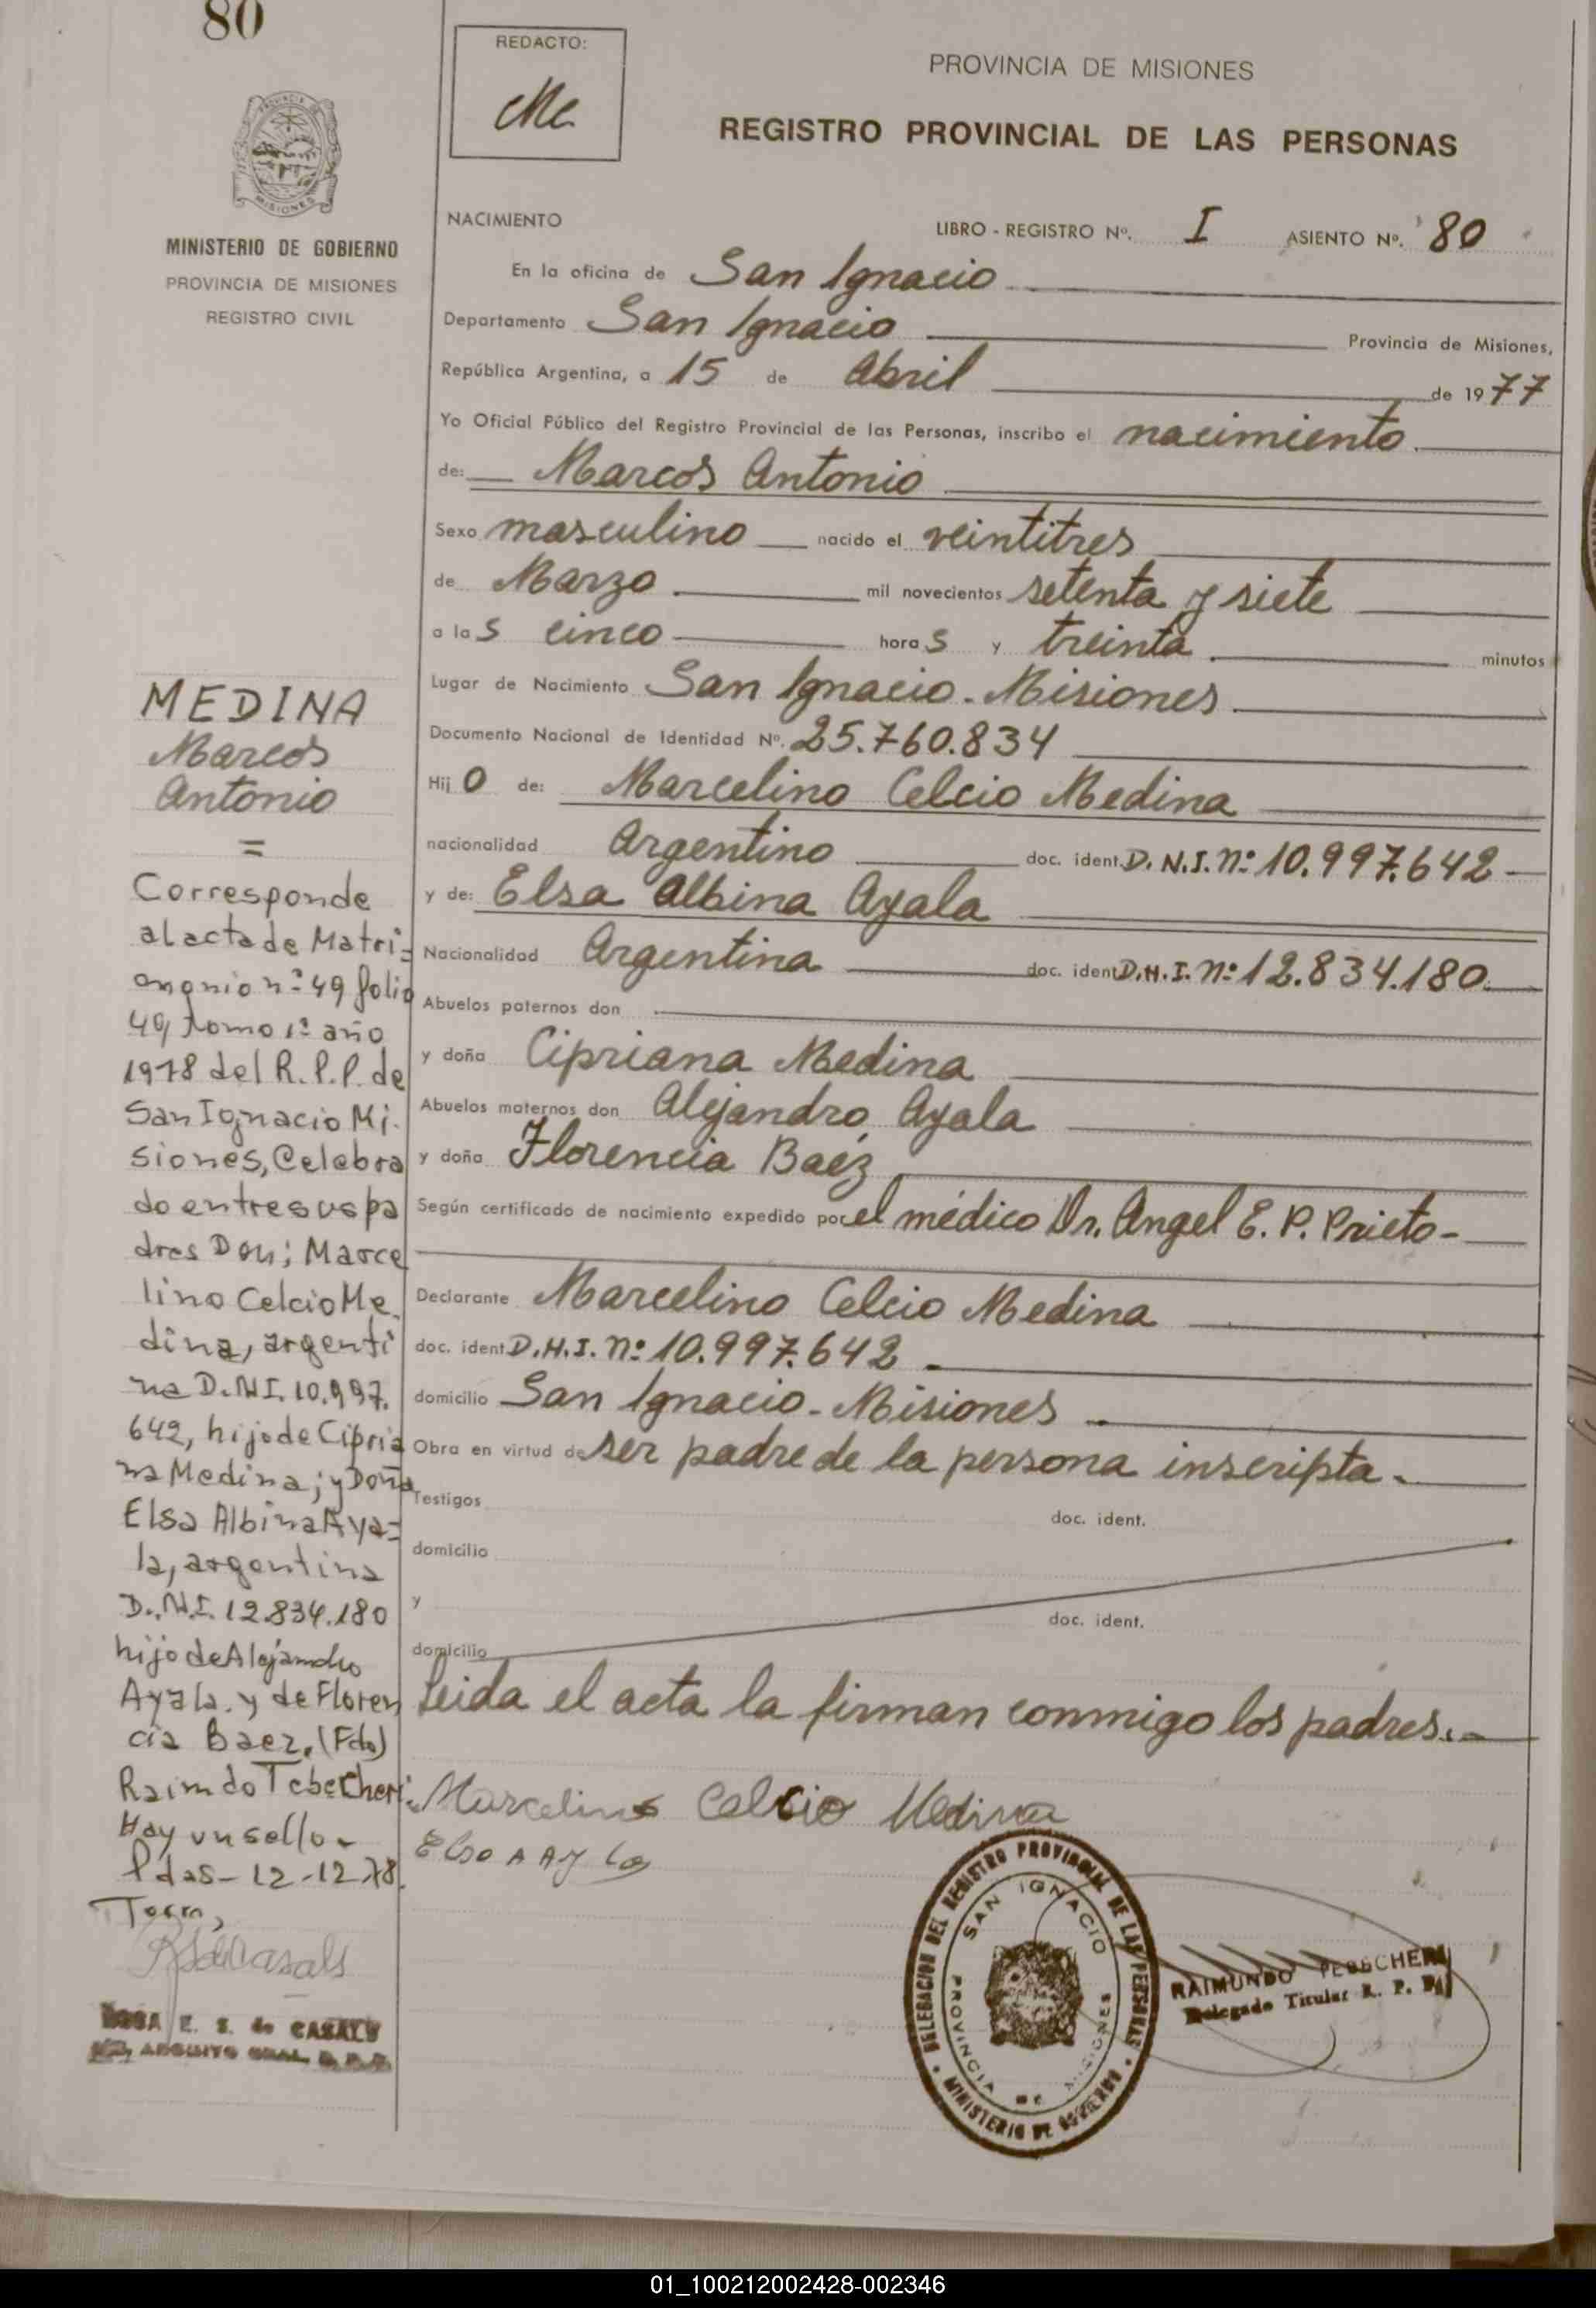 80
REDACTO:
Me
PROVINCIA DE MISIONES
REGISTRO PROVINCIAL DE LAS PERSONAS
MISIONES
MINISTERIO DE GOBIERNO
PROVINCIA DE MISIONES
REGISTRO CIVIL
NACIMIENTO LIBRO - REGISTRO Nº. I ASIENTO Nº. 80
En la oficina de San Ignacio
Departamento San Ignacio Provincia de Misiones,
República Argentina, a 15 de Abril de 1977
Yo Oficial Público del Registro Provincial de las Personas, inscribo el nacimiento
de: Marcos Antonio
Sexo masculino nacido el veintitres
de Marzo mil novecientos setenta y siete
a las cinco horas y treinta minutos
Lugar de Nacimiento San Ignacio - Misiones
Documento Nacional de Identidad Nº. 25.760.834
Hijo de: Marcelino Celcio Medina
nacionalidad Argentino doc. ident. D.N.I. nº 10.997.642
y de: Elsa Albina Ayala
Nacionalidad Argentina doc. ident. D.N.I. nº 12.834.180
Abuelos paternos don
y doña Cipriana Medina
Abuelos maternos don Alejandro Ayala
y doña Florencia Baéz
Según certificado de nacimiento expedido por el médico Dr. Angel E. P. Prieto-
Declarante Marcelino Celcio Medina
doc. ident. D.N.I. nº 10.997.642
domicilio San Ignacio - Misiones
Obra en virtud de ser padre de la persona inscripta.
Testigos doc. ident.
domicilio
y doc. ident.
domicilio
Leida el acta la firman conmigo los padres.-
Marcelino Celcio Medina
Elsa A Ayala
MEDINA
Marcos
Antonio
=
Corresponde
al acta de Matri=
monio nº 49 folio
49 tomo 1º año
1978 del R.P.P. de
San Ignacio Mi-
siones, Celebra
do entre sus pa
dres Don; Marce
lino Celcio Me
dina, argenti
na D.N.I. 10.997.
642, hijo de Cipria
na Medina; y Doña
Elsa Albina Aya=
la, argentina
D.N.I. 12.834.180
hijo de Alejandro
Ayala y de Floren
cia Baez. (Fdo)
Raimdo Tebecheri.
Hay un sello-
Pdas- 12-12-78.
ROSA E. S. de CASALS
DELEGACION DEL REGISTRO PROVINCIAL DE LAS PERSONAS
MINISTERIO DE GOBIERNO
SAN IGNACIO
PROVINCIA DE MISIONES
RAIMUNDO TEBECHERI
Delegado Titular R. P. P.
01_100212002428-002346